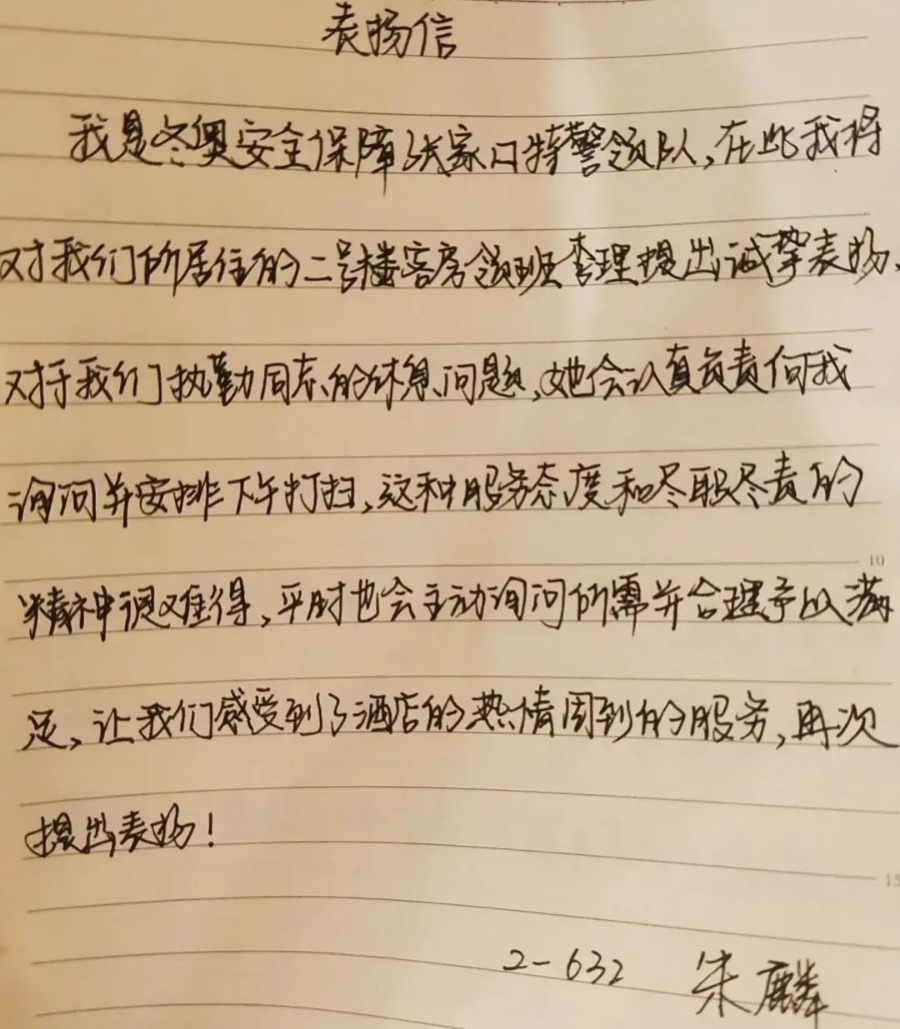 表扬信
我是冬奥安全保障张家口特警领队,在此我将
对我们所居住的二号楼客房领班李理提出诚挚表扬、
对于我们执勤同志的休息问题,她会认真负责何我
询问并安排下午打扫,这种服务态度和尽职尽责的
精神很难得,平时也会主动询问所需并合理予以满
足,让我们感受到了酒店的热情周到的服务,再次
提出表扬!
2-632 朱麟
10
15